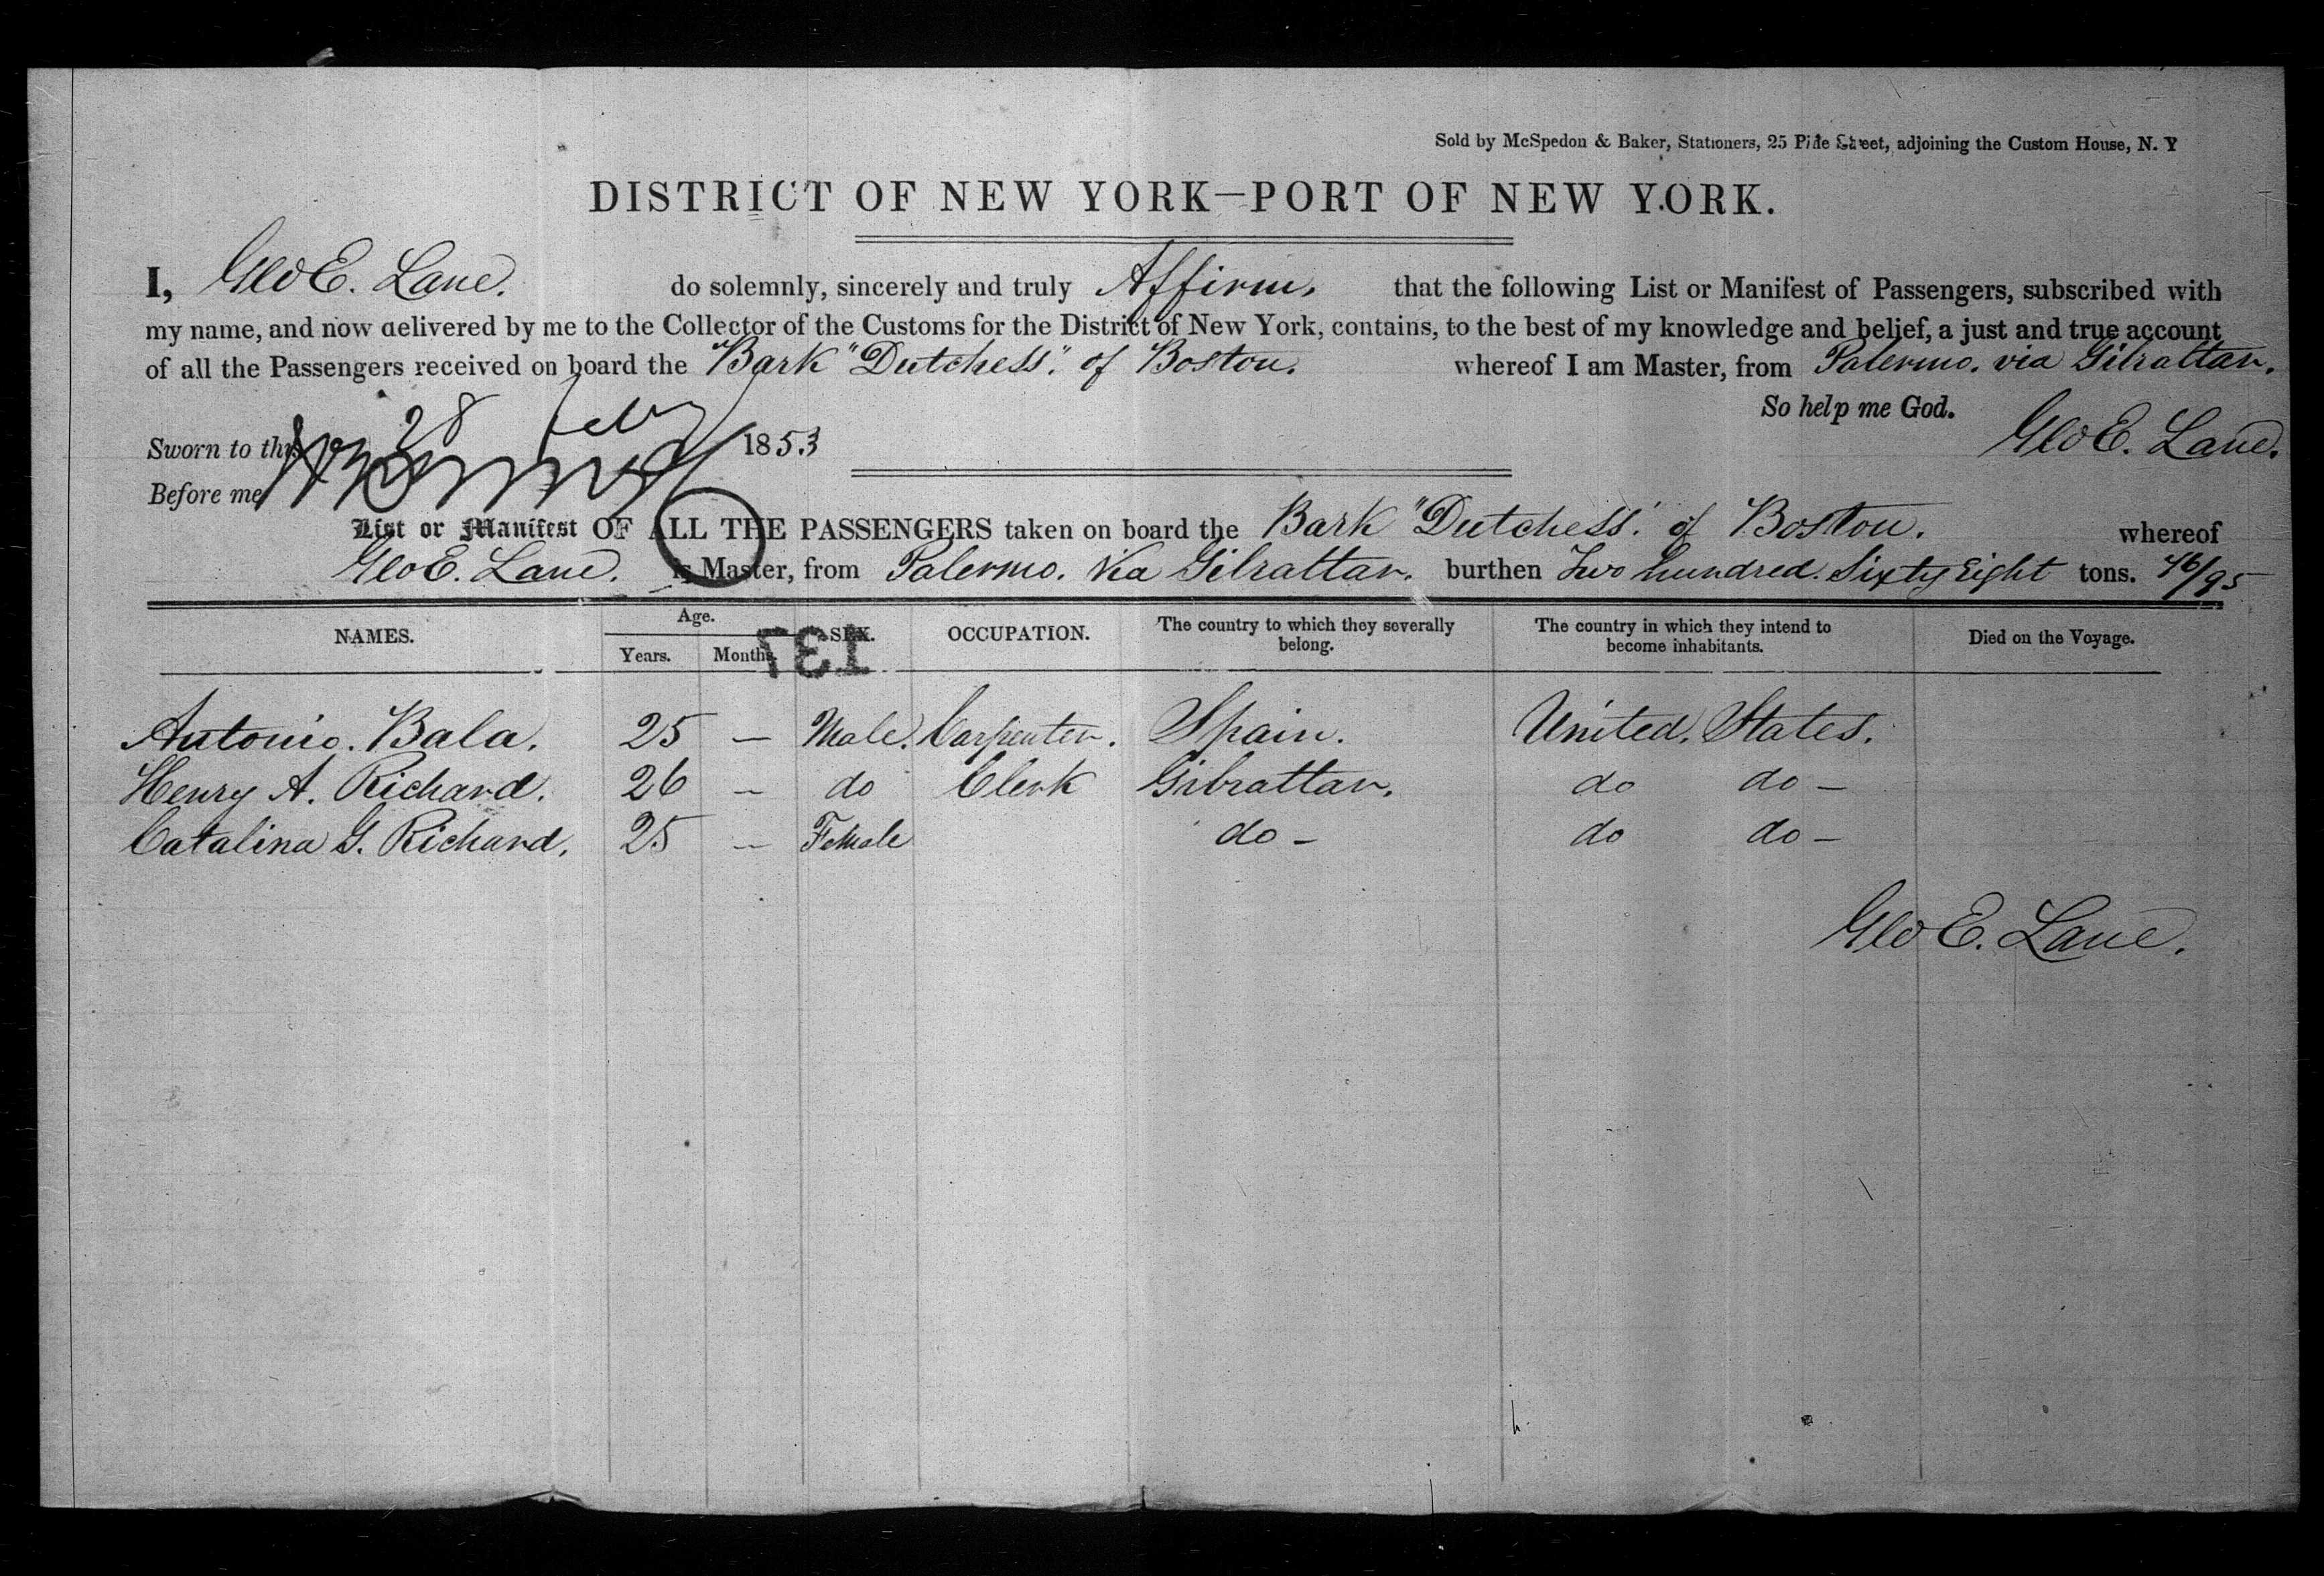 Sold by McSpedon & Baker, Stationers, 25 Pine Street, adjoining the Custom House, N. Y
DISTRICT OF NEW YORK—PORT OF NEW YORK.
I, Geo E. Lane. do solemnly, sincerely and truly Affirm. that the following List or Manifest of Passengers, subscribed with
my name, and now delivered by me to the Collector of the Customs for the District of New York, contains, to the best of my knowledge and belief, a just and true account
of all the Passengers received on board the Bark "Dutchess". of Boston. whereof I am Master, from Palermo. via Gilraltar.
So help me God.
Geo E. Lane.
Sworn to this 28 Feby 1853
Before me
List or Manifest OF ALL THE PASSENGERS taken on board the Bark "Dutchess". of Boston. whereof
Geo E. Lane. is Master, from Palermo. Via Gilraltar. burthen Two hundred. Sixty Eight tons. 46/95
NAMES. Age. Years. Months. SEX. OCCUPATION. The country to which they severally belong. The country in which they intend to become inhabitants. Died on the Voyage.
137
Antonio. Bala. 25 — Male. Carpenter. Spain. United. States.
Henry A. Richard. 26 — do Clerk Gibraltar. do do —
Catalina G. Richard. 25 — Female do — do do —
Geo E. Lane.